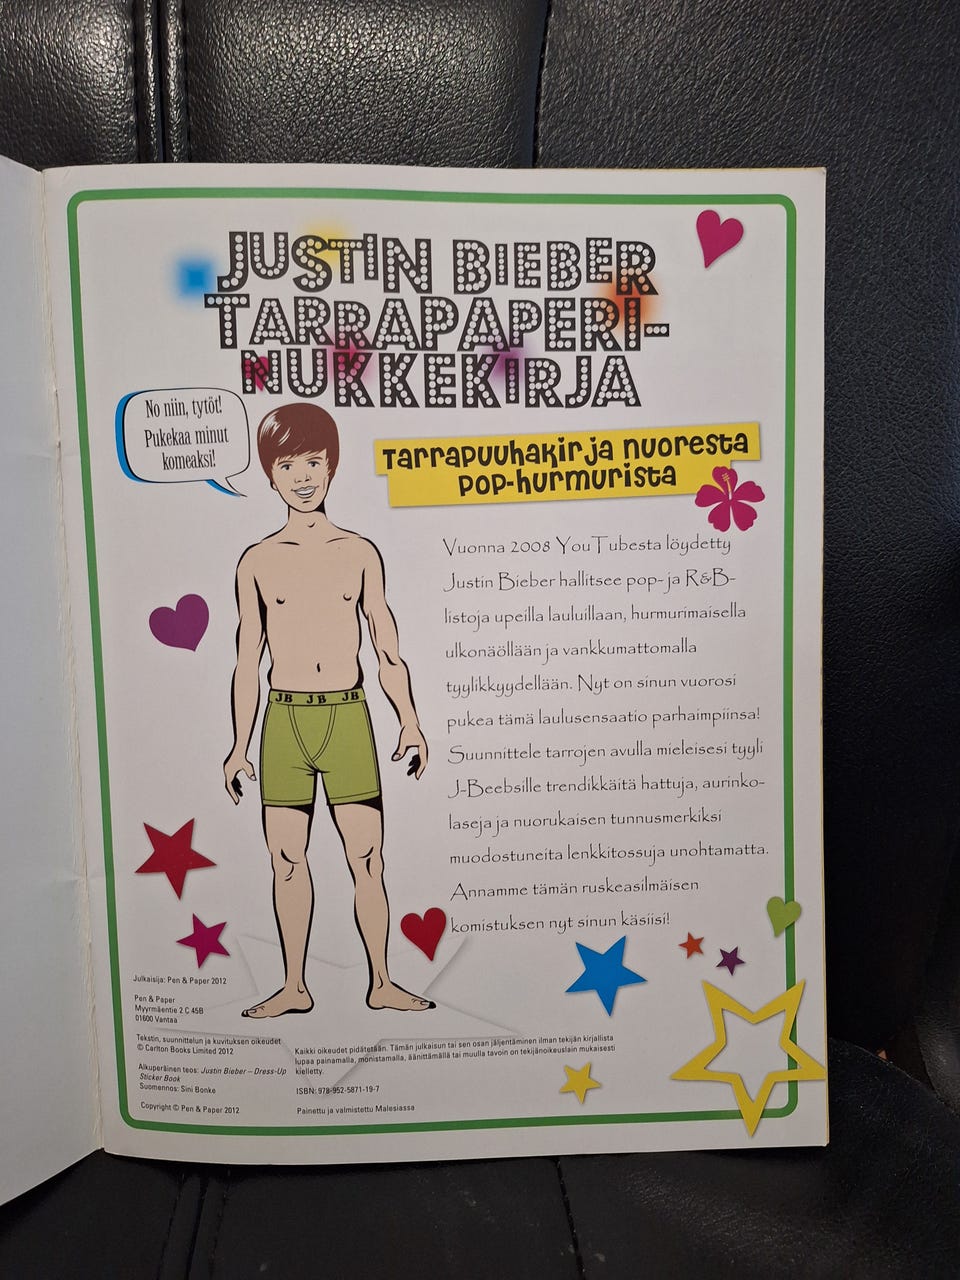 JUSTIN BIEBER
TARRAPAPERI-
NUKKEKIRJA
No niin, tytöt!
Pukekaa minut
komeaksi!
Tarrapuuhakirja nuoresta
pop-hurmurista
Vuonna 2008 YouTubesta löydetty
Justin Bieber hallitsee pop- ja R&B-
listoja upeilla lauluillaan, hurmurimaisella
ulkonäöllään ja vankkumattomalla
tyylikkyydellään. Nyt on sinun vuorosi
pukea tämä laulusensaatio parhaimpiinsa!
Suunnittele tarrojen avulla mieleisesi tyyli
J-Beebsille trendikkäitä hattuja, aurinko-
laseja ja nuorukaisen tunnusmerkiksi
muodostuneita lenkkitossuja unohtamatta.
Annamme tämän ruskeasilmäisen
komistuksen nyt sinun käsiisi!
JB JB JB
Julkaisija: Pen & Paper 2012
Pen & Paper
Myyrmäentie 2 C 45B
01600 Vantaa
Tekstin, suunnittelun ja kuvituksen oikeudet
© Carlton Books Limited 2012
Alkuperäinen teos: Justin Bieber – Dress-Up
Sticker Book
Suomennos: Sini Bonke
Copyright © Pen & Paper 2012
Kaikki oikeudet pidätetään. Tämän julkaisun tai sen osan jäljentäminen ilman tekijän kirjallista
lupaa painamalla, monistamalla, äänittämällä tai muulla tavoin on tekijänoikeuslain mukaisesti
kielletty.
ISBN: 978-952-5871-19-7
Painettu ja valmistettu Malesiassa